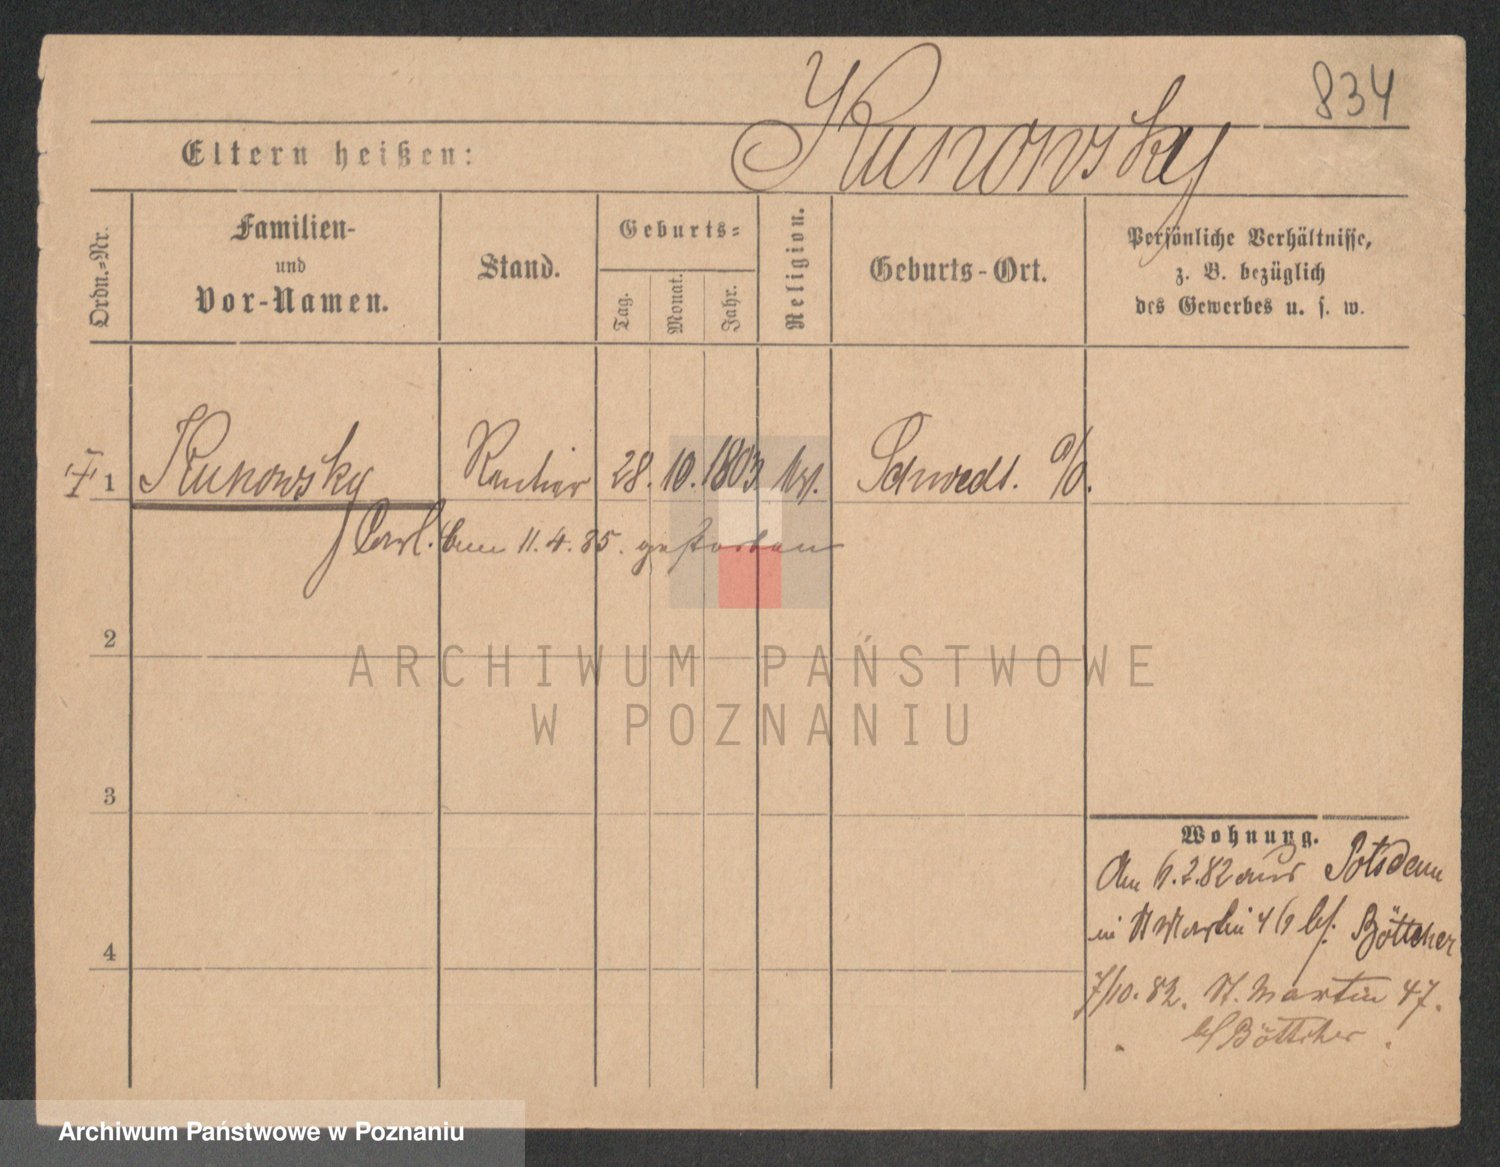 834
Kunowsky
Eltern heißen:
Ordn.-Nr.
Familien-
und
Vor-Namen.
Stand.
Geburts-
Tag.
Monat.
Jahr.
Religion.
Geburts-Ort.
Persönliche Verhältnisse,
z. B. bezüglich
des Gewerbes u. s. w.
1 Kunowsky Rentier 28. 10. 1803 Schwedt. a/O.
Carl. am 11.4.85. gestorben
2
3
4
Wohnung.
Am 6.2.82 aus Potsdam
in St Martin 46 bei Böttcher
7/10. 82. St. Martin 47.
bei Böttcher.
ARCHIWUM PAŃSTWOWE
W POZNANIU
Archiwum Państwowe w Poznaniu